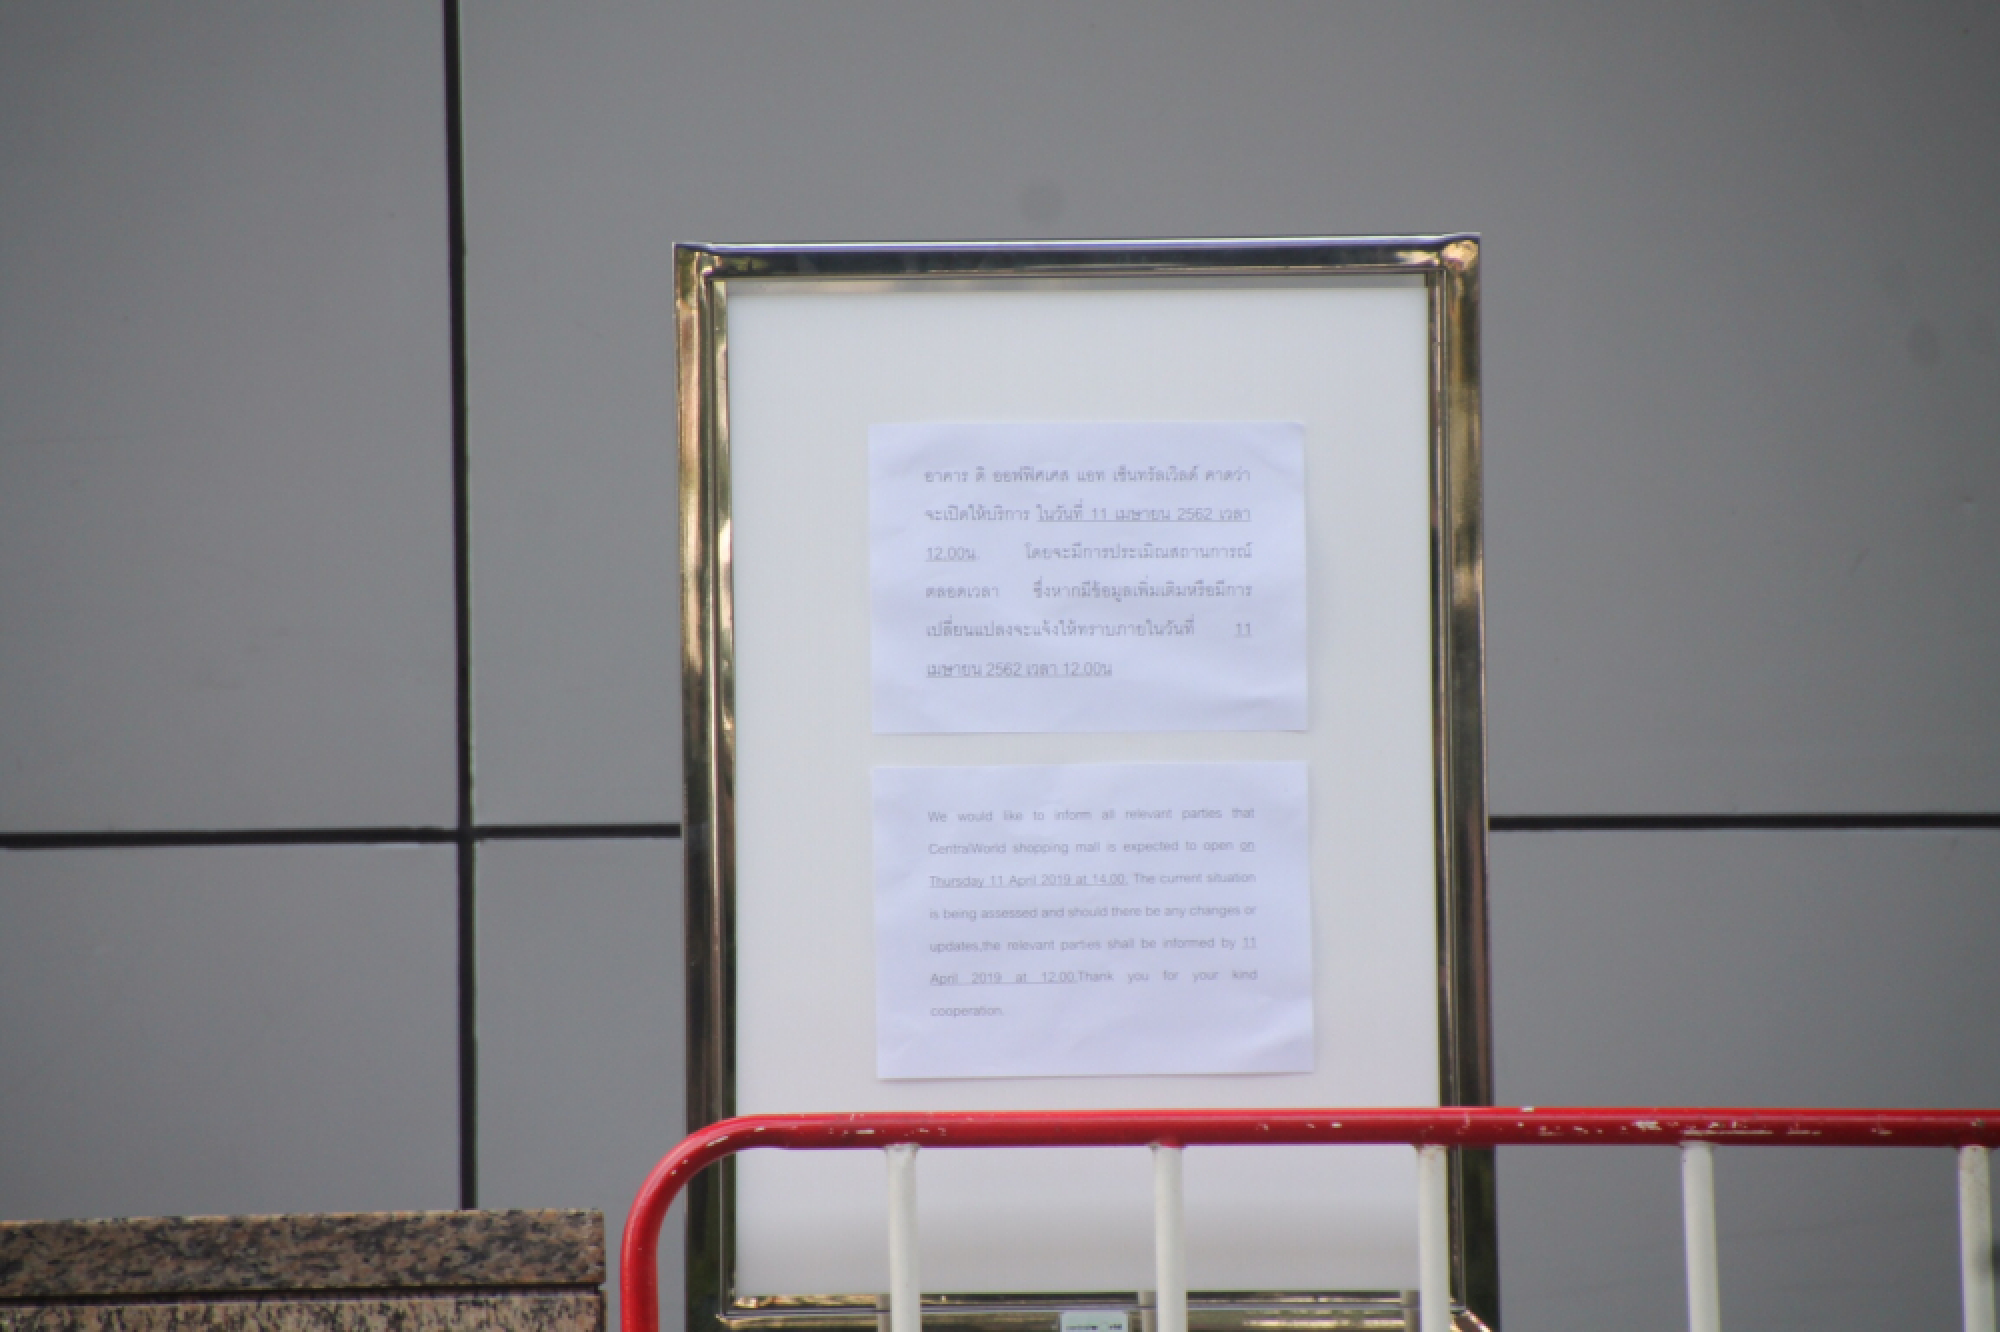 อาคาร ดิ ออฟฟิศเศส แอท เซ็นทรัลเวิลด์ คาดว่า
จะเปิดให้บริการ ในวันที่ 11 เมษายน 2562 เวลา
12.00น. โดยจะมีการประเมิณสถานการณ์
ตลอดเวลา ซึ่งหากมีข้อมูลเพิ่มเติมหรือมีการ
เปลี่ยนแปลงจะแจ้งให้ทราบภายในวันที่ 11
เมษายน 2562 เวลา 12.00น
We would like to inform all relevant parties that
CentralWorld shopping mall is expected to open on
Thursday 11 April 2019 at 14.00. The current situation
is being assessed and should there be any changes or
updates,the relevant parties shall be informed by 11
April 2019 at 12.00.Thank you for your kind
cooperation.